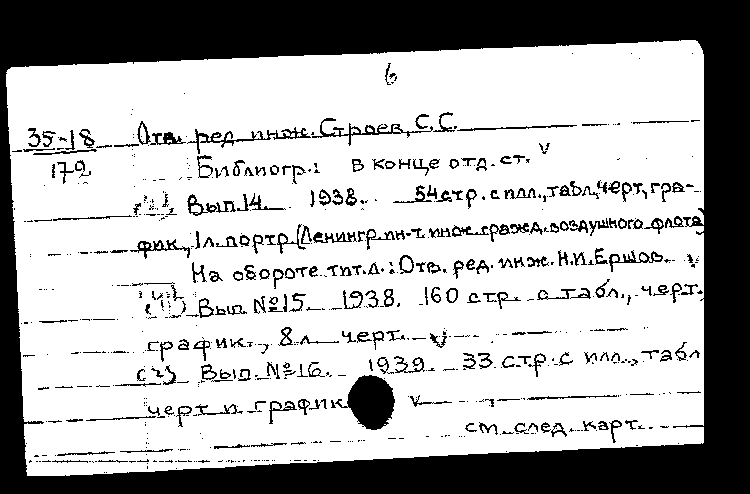 6
35-18 Отв. ред. инж. Строев, С.С.
172 Библиогр.: в конце отд. ст. v
Вып. 14. 1938. 54 стр. с илл., табл, черт, гра-
фик., 1 л. портр. (Ленингр. ин-т. инж. гражд. воздушного флота)
На обороте тит. л.: Отв. ред. инж. Н.И. Ершов. v
Вып. №15. 1938. 160 стр. с табл., черт.,
график., 8 л. черт. v
(2) Вып. №16. 1939. 33 стр. с илл., табл
черт и график v
см. след. карт.